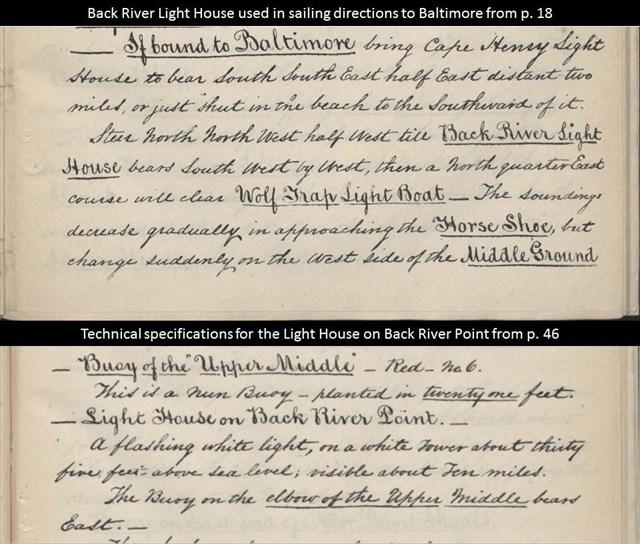 Back River Light House used in sailing directions to Baltimore from p. 18
— If bound to Baltimore bring Cape Henry Light
House to bear South South East half East distant two
miles, or just shut in the beach to the Southward of it.
Steer North North West half West till Back River Light
House bears South West by West, then a North quarter East
course will clear Wolf Trap Light Boat — The soundings
decrease gradually in approaching the Horse Shoe, but
change suddenly on the West side of the Middle Ground
Technical specifications for the Light House on Back River Point from p. 46
— Buoy of the "Upper Middle" — Red — No 6.
This is a Nun Buoy — planted in twenty one feet.
— Light House on Back River Point. —
A flashing white light, on a white Tower about thirty
five feet above sea level; visible about Ten miles.
The Buoy on the elbow of the Upper Middle bears
East. —